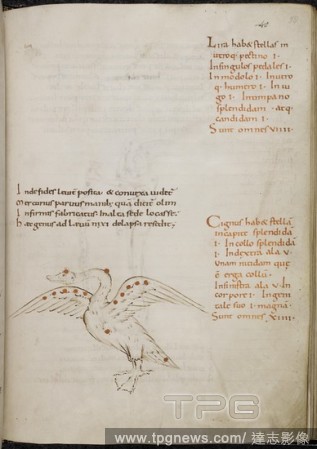 40
Lira hab& stellas in
utroq; pectino I ·
In singulos pedales I ·
In modolo I · In utro
q · humero I · In iu
go I · In timpano I
splendidam · atq;
candidam I ·
Sunt omnes VIIII ·
Inde fides leuit posita & conuexa uidet̄
Mercurius paruus manib; quā dicit̄ olim
Infirmis fabricatus in alta sede locasse
Cignus hab& stellā
in capite splendidā
I · In collo splendidā
I · In dextra ala V ·
unam nitidam quę
ē erga collū ·
In sinistra ala V · In
corpore I · In geni
tale suo I · magnā ·
Sunt omnes XIIII ·
TPG
www.tpgnews.com / 達志影像